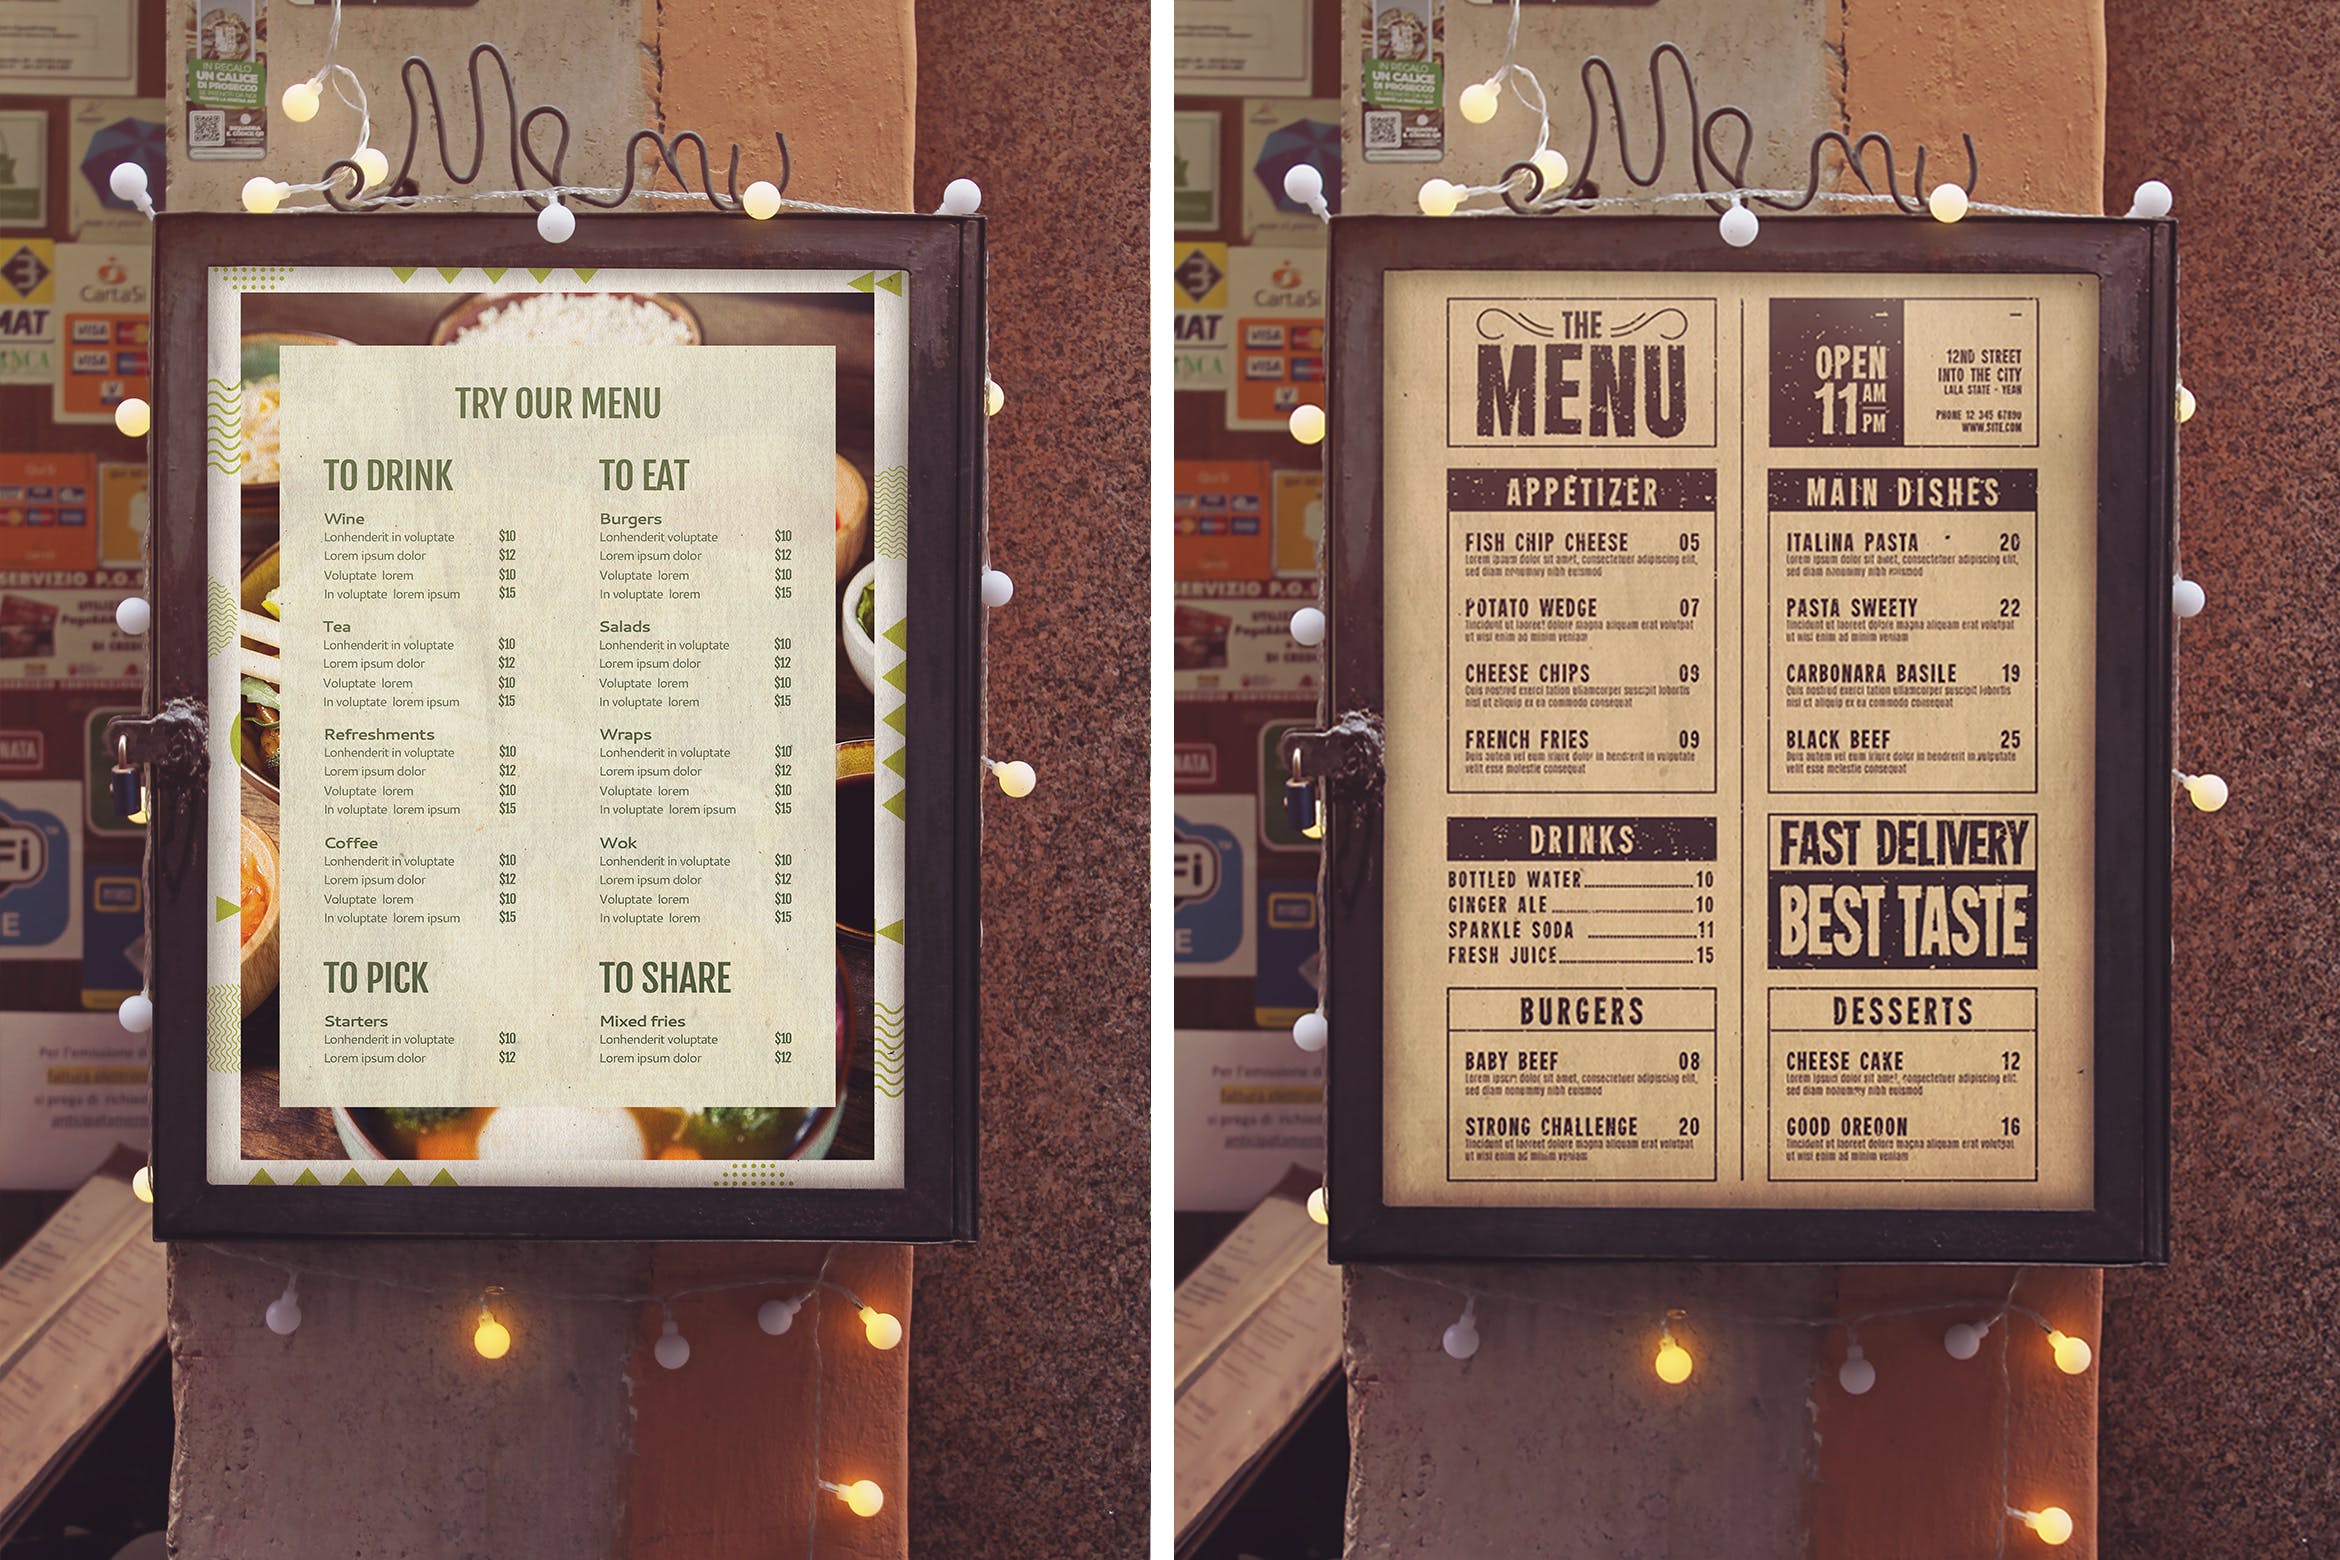 IN REGALO
UN CALICE
DI PROSECCO
Menu
3
CartaSi
MAT
VISA
VISA
SERVIZIO P.O.S
NATA
Fi
Per l'emissione di
fattura elettron
si prega di richied
anticipatament
TRY OUR MENU
TO DRINK
Wine
Lonhenderit in voluptate $10
Lorem ipsum dolor $12
Voluptate lorem $10
In voluptate lorem ipsum $15
Tea
Lonhenderit in voluptate $10
Lorem ipsum dolor $12
Voluptate lorem $10
In voluptate lorem ipsum $15
Refreshments
Lonhenderit in voluptate $10
Lorem ipsum dolor $12
Voluptate lorem $10
In voluptate lorem ipsum $15
Coffee
Lonhenderit in voluptate $10
Lorem ipsum dolor $12
Voluptate lorem $10
In voluptate lorem ipsum $15
TO PICK
Starters
Lonhenderit in voluptate $10
Lorem ipsum dolor $12
TO EAT
Burgers
Lonhenderit voluptate $10
Lorem ipsum dolor $12
Voluptate lorem $10
In voluptate lorem $15
Salads
Lonhenderit in voluptate $10
Lorem ipsum dolor $12
Voluptate lorem $10
In voluptate lorem $15
Wraps
Lonhenderit in voluptate $10
Lorem ipsum dolor $12
Voluptate lorem $10
In voluptate lorem ipsum $15
Wok
Lonhenderit in voluptate $10
Lorem ipsum dolor $12
Voluptate lorem $10
In voluptate lorem $15
TO SHARE
Mixed fries
Lonhenderit voluptate $10
Lorem ipsum dolor $12
IN REGALO
UN CALICE
DI PROSECCO
Menu
3
CartaSi
MAT
VISA
VISA
SERVIZIO P.O.S
NATA
Fi
Per l'emissione di
fattura elettron
si prega di richied
anticipatament
THE
MENU
OPEN
11 AM
PM
12ND STREET
INTO THE CITY
LALA STATE - YEAH
PHONE 12 345 67890
WWW.SITE.COM
APPETIZER
FISH CHIP CHEESE 05
Lorem ipsum dolor sit amet, consectetuer adipiscing elit,
sed diam nonummy nibh euismod
POTATO WEDGE 07
Tincidunt ut laoreet dolore magna aliquam erat volutpat
ut wisi enim ad minim veniam
CHEESE CHIPS 09
Quis nostrud exerci tation ullamcorper suscipit lobortis
nisl ut aliquip ex ea commodo consequat
FRENCH FRIES 09
Duis autem vel eum iriure dolor in hendrerit in vulputate
velit esse molestie consequat
DRINKS
BOTTLED WATER 10
GINGER ALE 10
SPARKLE SODA 11
FRESH JUICE 15
BURGERS
BABY BEEF 08
Lorem ipsum dolor sit amet, consectetuer adipiscing elit,
sed diam nonummy nibh euismod
STRONG CHALLENGE 20
Tincidunt ut laoreet dolore magna aliquam erat volutpat
ut wisi enim ad minim veniam
MAIN DISHES
ITALINA PASTA 20
Lorem ipsum dolor sit amet, consectetuer adipiscing elit,
sed diam nonummy nibh euismod
PASTA SWEETY 22
Tincidunt ut laoreet dolore magna aliquam erat volutpat
ut wisi enim ad minim veniam
CARBONARA BASILE 19
Quis nostrud exerci tation ullamcorper suscipit lobortis
nisl ut aliquip ex ea commodo consequat
BLACK BEEF 25
Duis autem vel eum iriure dolor in hendrerit in vulputate
velit esse molestie consequat
FAST DELIVERY
BEST TASTE
DESSERTS
CHEESE CAKE 12
Lorem ipsum dolor sit amet, consectetuer adipiscing elit,
sed diam nonummy nibh euismod
GOOD OREOON 16
Tincidunt ut laoreet dolore magna aliquam erat volutpat
ut wisi enim ad minim veniam